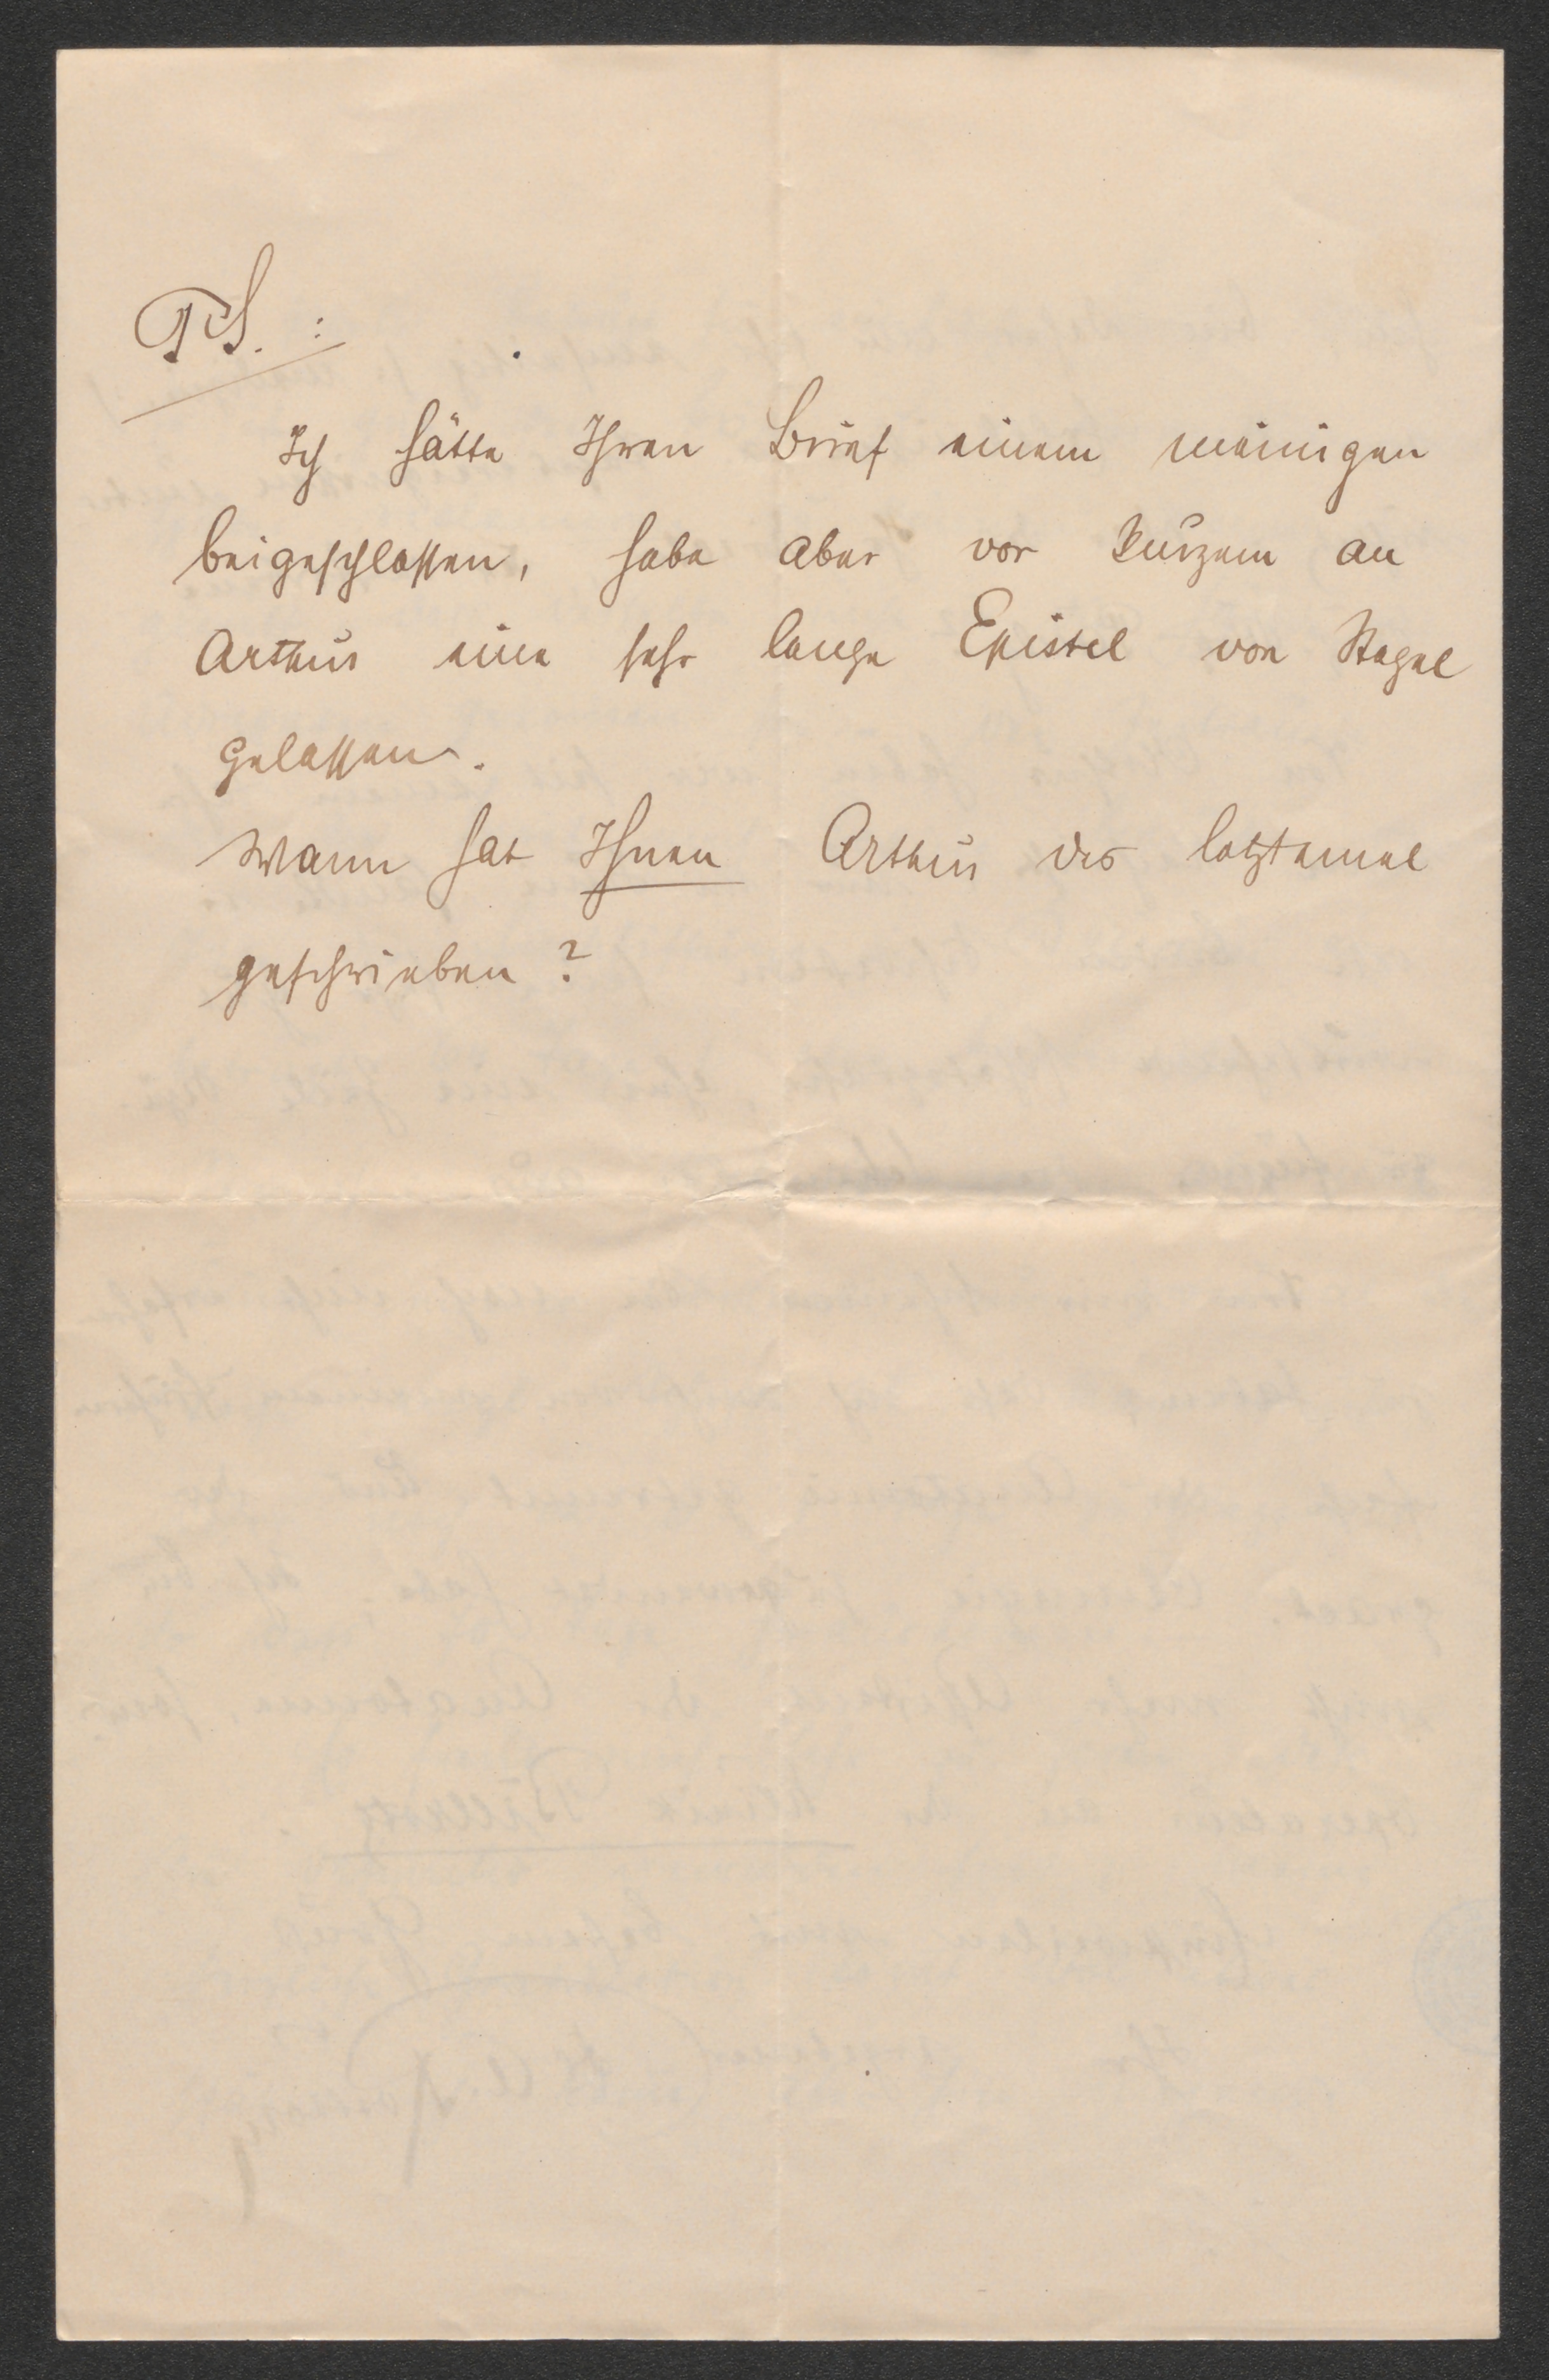 PS. :
Ich hätte Ihren Brief einem meinigen
beigeschlossen, habe aber vor Kurzem an
Arthur eine sehr lange Epistel von Stapel
gelassen.
Wann hat Ihnen Arthur das letztemal
geschrieben?